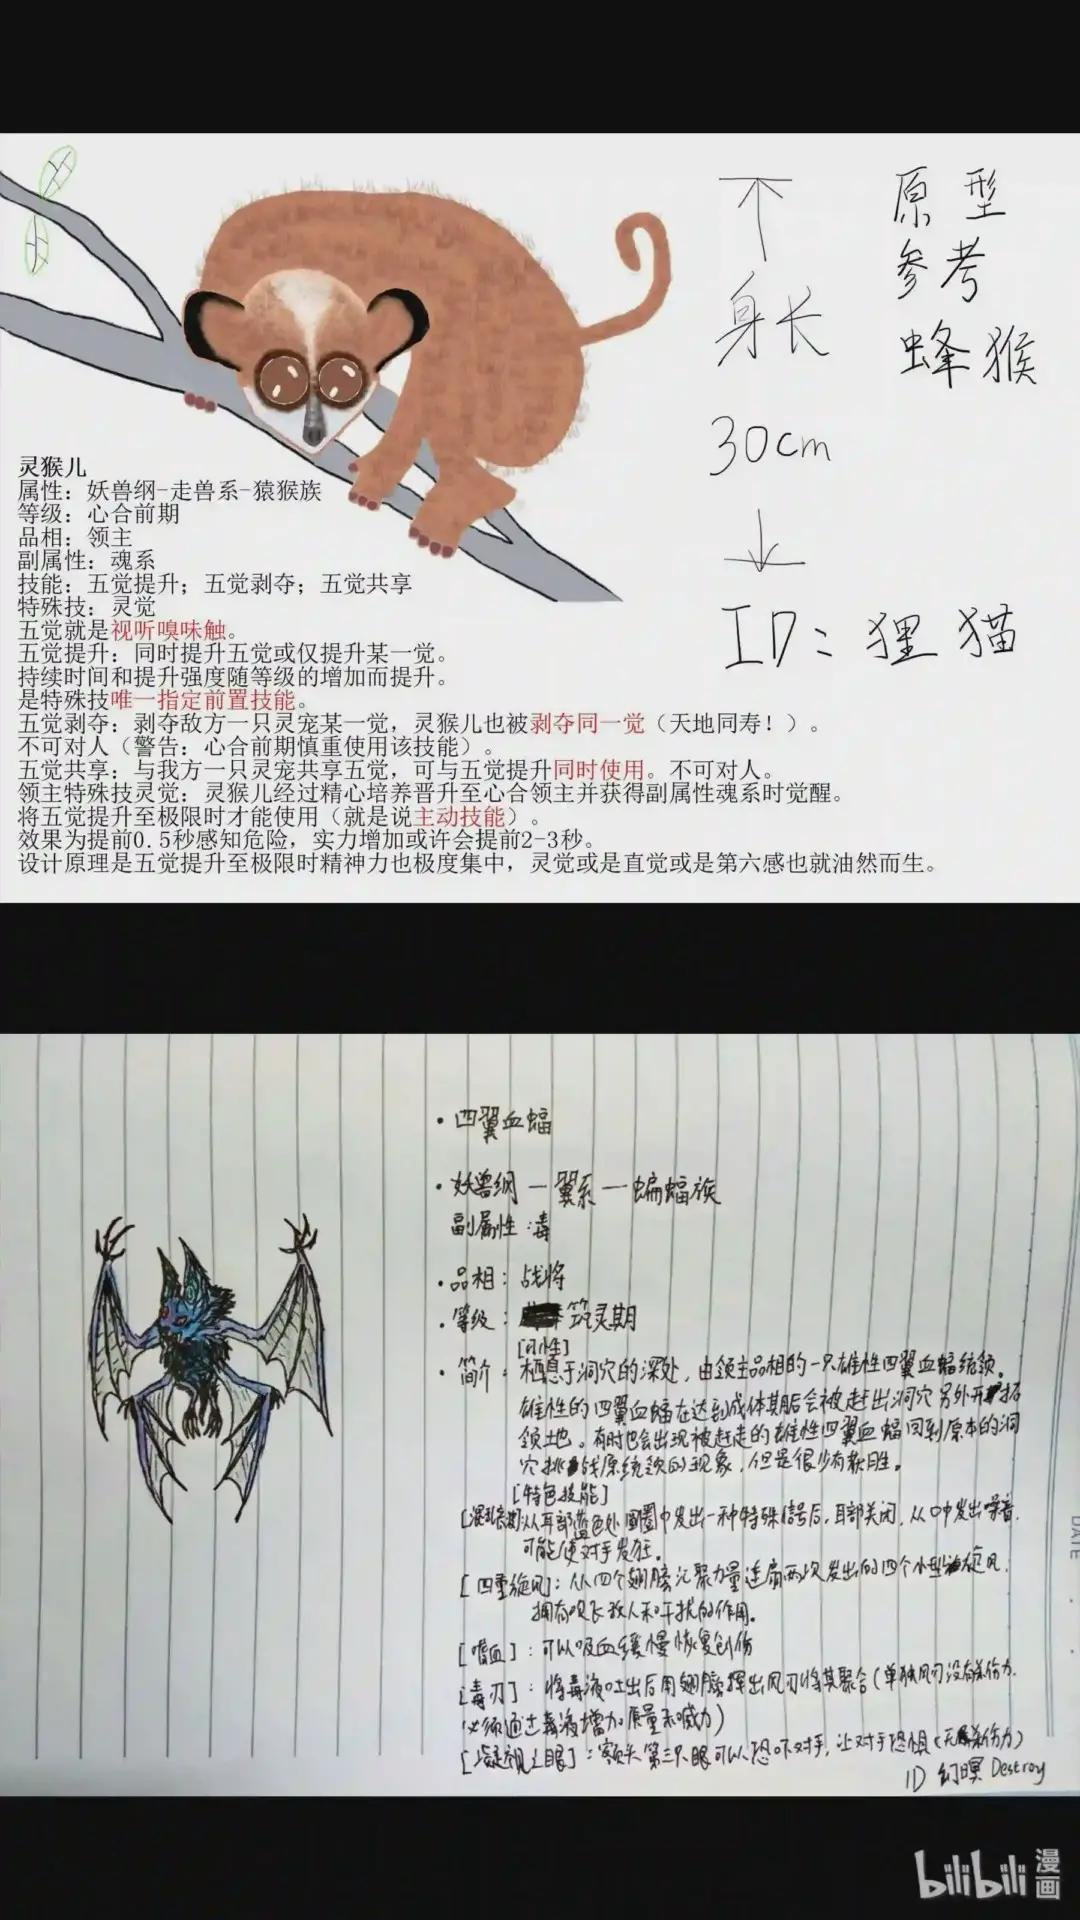 原型
参考
蜂猴
身长
30cm
ID：狸猫
灵猴儿
属性：妖兽纲-走兽系-猿猴族
等级：心合前期
品相：领主
副属性：魂系
技能：五觉提升；五觉剥夺；五觉共享
特殊技：灵觉
五觉就是视听嗅味触。
五觉提升：同时提升五觉或仅提升某一觉。
持续时间和提升强度随等级的增加而提升。
是特殊技唯一指定前置技能。
五觉剥夺：剥夺敌方一只灵宠某一觉，灵猴儿也被剥夺同一觉（天地同寿！）。
不可对人（警告：心合前期慎重使用该技能）。
五觉共享：与我方一只灵宠共享五觉，可与五觉提升同时使用。不可对人。
领主特殊技灵觉：灵猴儿经过精心培养晋升至心合领主并获得副属性魂系时觉醒。
将五觉提升至极限时才能使用（就是说主动技能）。
效果为提前0.5秒感知危险，实力增加或许会提前2-3秒。
设计原理是五觉提升至极限时精神力也极度集中，灵觉或是直觉或是第六感也就油然而生。
·四翼血蝠
·妖兽纲—翼系—蝙蝠族
副属性：毒
·品相：战将
·等级：筑灵期
[习性]
·简介：栖息于洞穴的深处，由领主品相的一只雄性四翼血蝠统领。
雄性的四翼血蝠在达到成体期后会被赶出洞穴另外开拓
领土地。有时也会出现被赶走的雄性四翼血蝠回到原本的洞
穴挑战原统领的现象，但是很少有获胜。
[特色技能]
从耳部蓝色处圈圈中发出一种特殊信号后，耳部关闭，从口中发出噪音，
可能使对手发狂。
[四重旋风]：从四个翅膀汇聚力量连扇两次发出的四个小型旋风，
拥有吹飞敌人和干扰的作用。
[嗜血]：可以吸血缓慢恢复创伤
[毒刃]：将毒液吐出后用翅膀挥出风刃将其聚合（单独风刃没有杀伤力，
必须通过毒液增加质量和威力）
[凝视之眼]：额头第三只眼可以恐吓对手，让对手恐惧（无杀伤力）
ID 幻暝 Destroy
DATE
bilibili 漫画